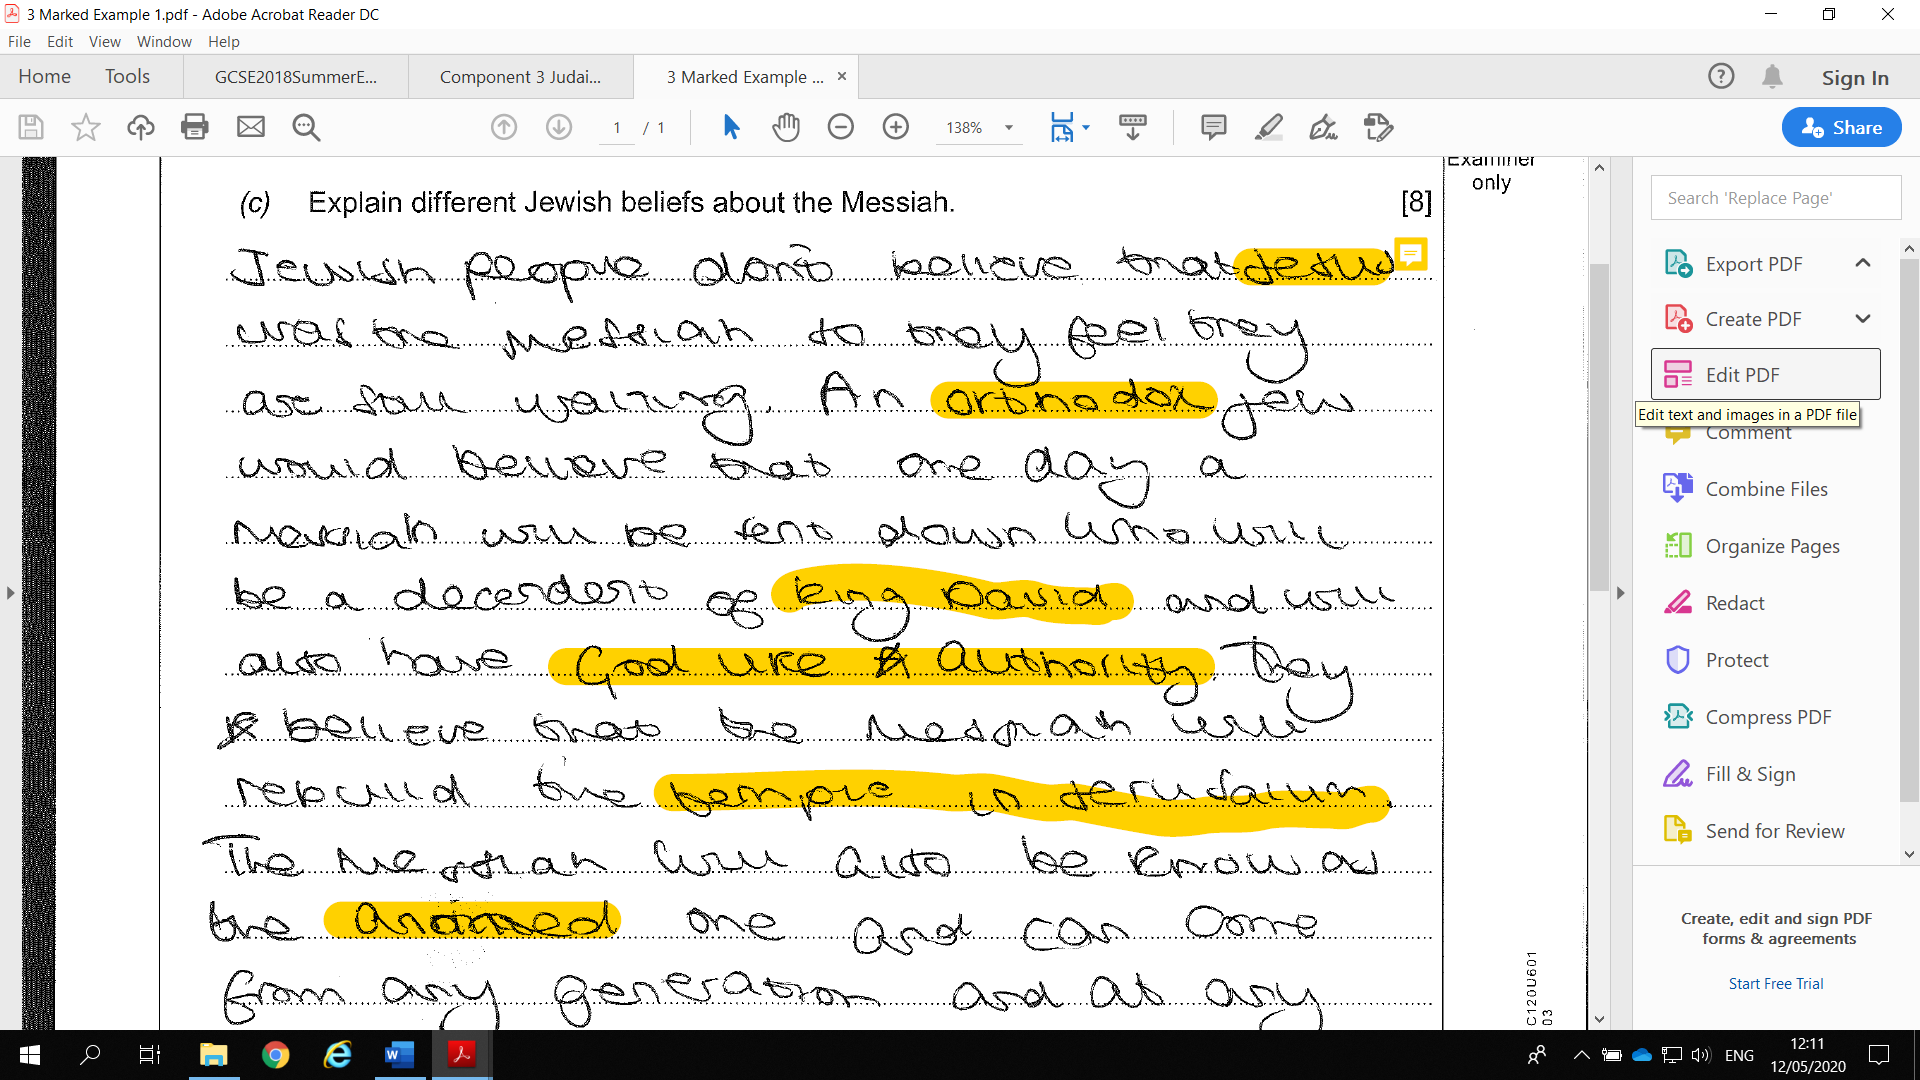 3 Marked Example 1.pdf - Adobe Acrobat Reader DC
File Edit View Window Help
Home Tools GCSE2018SummerE... Component 3 Judai... 3 Marked Example ... × Sign In
1 / 1 138% Share
Examiner only
(c) Explain different Jewish beliefs about the Messiah. [8]
Jewish people don't believe that Jesus
was the Messiah so they feel they
are still waiting. An orthodox jew
would believe that one day a
Messiah will be sent down who will
be a decendent of king David and will
also have God like Authority. They
believe that the Messiah will
rebuild the temple in Jerusalum.
The Messiah will also be know as
the anointed one and can come
from any generation and at any
C120U601
03
Search 'Replace Page'
Export PDF
Create PDF
Edit PDF
Edit text and images in a PDF file
Comment
Combine Files
Organize Pages
Redact
Protect
Compress PDF
Fill & Sign
Send for Review
Create, edit and sign PDF
forms & agreements
Start Free Trial
ENG
12:11
12/05/2020